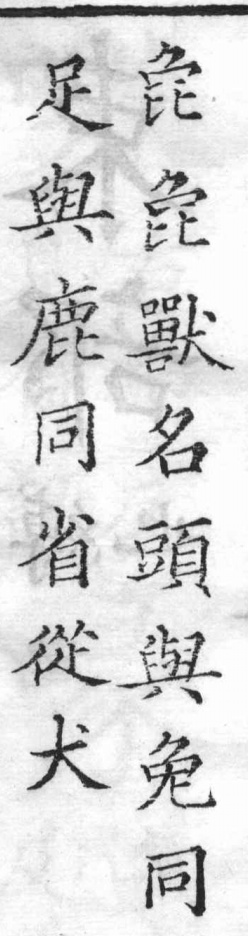 㲋㲋獸名頭與兔同
足與鹿同省從犬